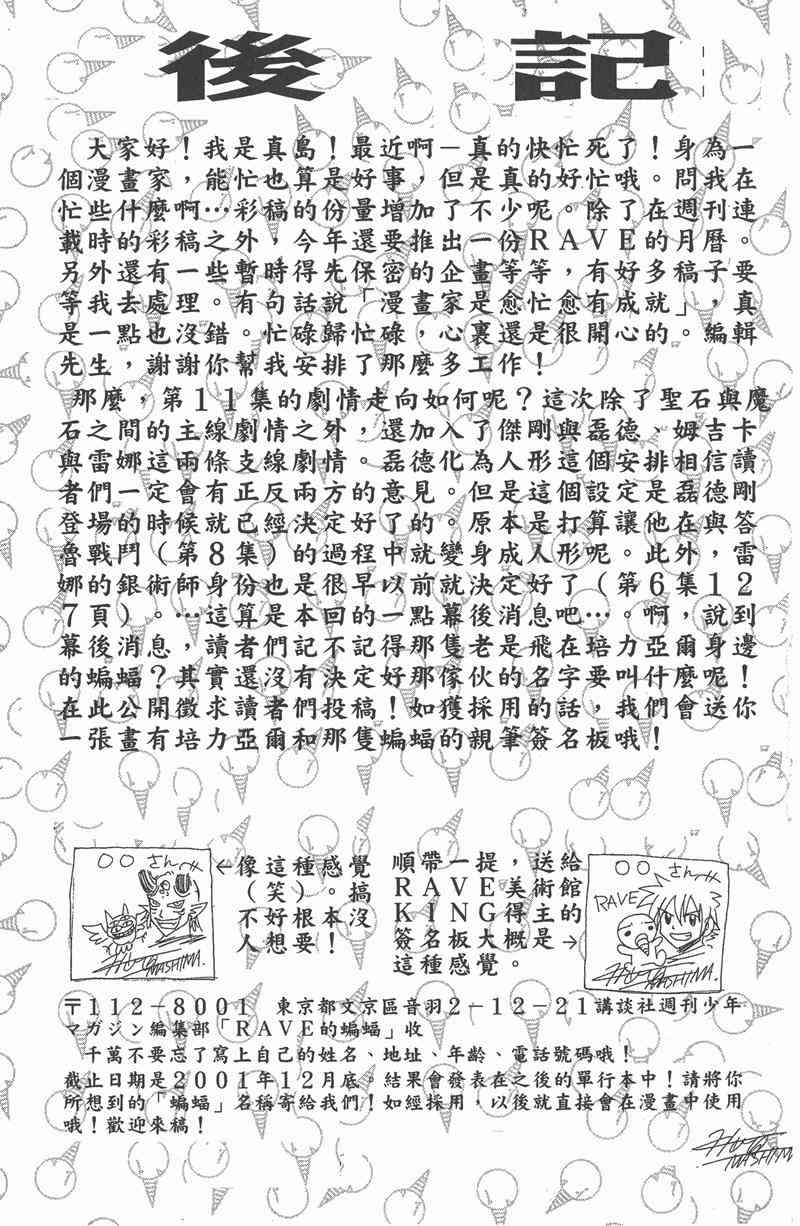 後記
大家好！我是真島！最近啊－真的快忙死了！身為一
個漫畫家，能忙也算是好事，但是真的好忙哦。問我在
忙些什麼啊…彩稿的份量增加了不少呢。除了在週刊連
載時的彩稿之外，今年還要推出一份ＲＡＶＥ的月曆。
另外還有一些暫時得先保密的企畫等等，有好多稿子要
等我去處理。有句話說「漫畫家是愈忙愈有成就」，真
是一點也沒錯。忙碌歸忙碌，心裏還是很開心的。編輯
先生，謝謝你幫我安排了那麼多工作！
那麼，第１１集的劇情走向如何呢？這次除了聖石與魔
石之間的主線劇情之外，還加入了傑剛與磊德、姆吉卡
與雷娜這兩條支線劇情。磊德化為人形這個安排相信讀
者們一定會有正反兩方的意見。但是這個設定是磊德剛
登場的時候就已經決定好了的。原本是打算讓他在與答
魯戰鬥（第８集）的過程中就變身成人形呢。此外，雷
娜的銀術師身份也是很早以前就決定好了（第６集１２
７頁）。…這算是本回的一點幕後消息吧…。啊，說到
幕後消息，讀者們記不記得那隻老是飛在培力亞爾身邊
的蝙蝠？其實還沒有決定好那傢伙的名字要叫什麼呢！
在此公開徵求讀者們投稿！如獲採用的話，我們會送你
一張畫有培力亞爾和那隻蝙蝠的親筆簽名板哦！
○○さんへ
HIRO MASHIMA.
←像這種感覺
（笑）。搞
不好根本沒
人想要！
順帶一提，送給
ＲＡＶＥ美術館
ＫＩＮＧ得主的
簽名板大概是→
這種感覺。
○○さんへ
RAVE
HIRO MASHIMA.
〒１１２－８００１　東京都文京區音羽２－１２－２１講談社週刊少年
マガジン編集部「ＲＡＶＥ的蝙蝠」收
千萬不要忘了寫上自己的姓名、地址、年齡、電話號碼哦！
截止日期是２００１年１２月底。結果會發表在之後的單行本中！請將你
所想到的「蝙蝠」名稱寄給我們！如經採用，以後就直接會在漫畫中使用
哦！歡迎來稿！
HIRO MASHIMA